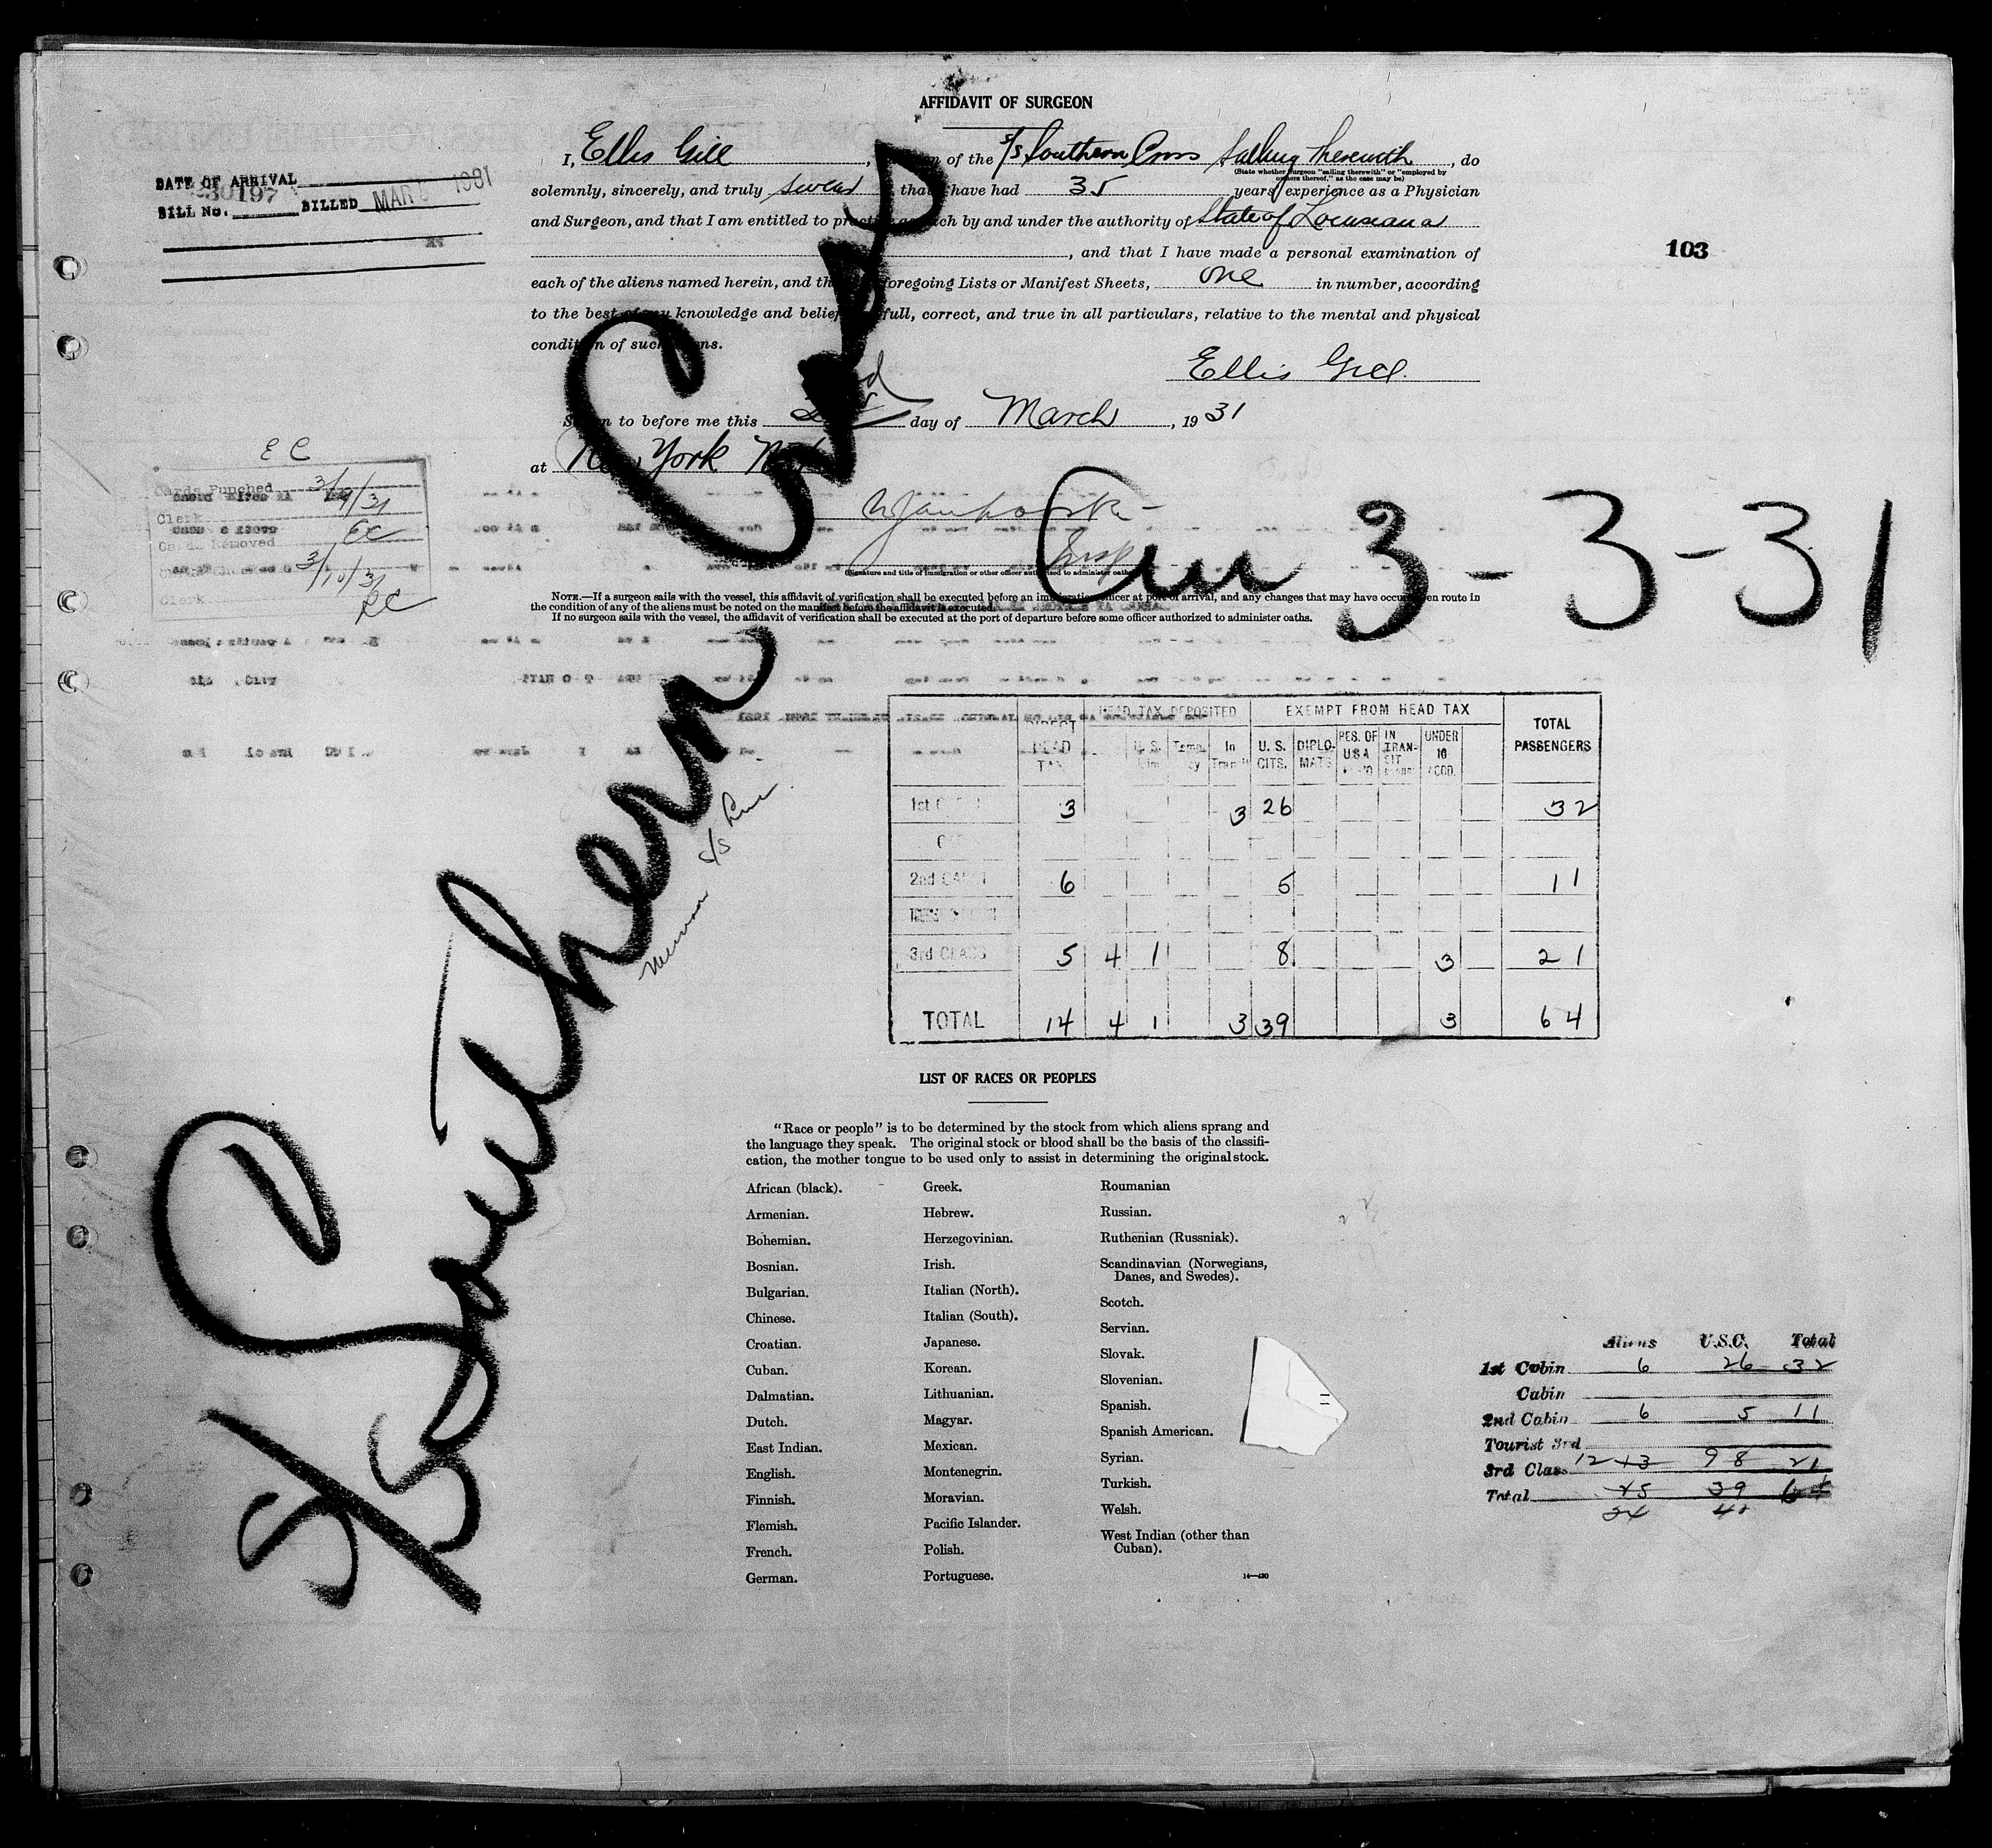 AFFIDAVIT OF SURGEON
I, Ellis Gill, of the S/S Southern Cross Sailing Therewith, do
(State whether surgeon "sailing therewith" or "employed by
owners thereof," as the case may be)
solemnly, sincerely, and truly swear that have had 35 years' experience as a Physician
and Surgeon, and that I am entitled to practice as such by and under the authority of State of Louisiana
, and that I have made a personal examination of
each of the aliens named herein, and the foregoing Lists or Manifest Sheets, one in number, according
to the best of my knowledge and belief, full, correct, and true in all particulars, relative to the mental and physical
condition of such aliens.
Ellis Gill.
Sworn to before me this day of March, 19 31
at New York N.Y.
Insp
(Signature and title of immigration or other officer authorized to administer oaths)
NOTE.—If a surgeon sails with the vessel, this affidavit of verification shall be executed before an immigration officer at port of arrival, and any changes that may have occurred en route in
the condition of any of the aliens must be noted on the manifest before the affidavit is executed.
If no surgeon sails with the vessel, the affidavit of verification shall be executed at the port of departure before some officer authorized to administer oaths.
DATE OF ARRIVAL
30197
BILL No. BILLED MAR 1931
103
E C
Cards Punched 3/9/31
Clerk EC
Cards Removed
3/10/31
Clerk RC
S/S Southern Cross
Arr 3-3-31
Munson S/S Line
DIRECT HEAD TAX HEAD TAX DEPOSITED EXEMPT FROM HEAD TAX TOTAL PASSENGERS
U. S. Temp. In Transit U. S. CITS. DIPLOMATS RES. OF USA IN TRANSIT UNDER 16 ACCD.
1st 3 3 26 32
2nd CABIN 6 5 11
3rd CLASS 5 4 1 8 3 21
TOTAL 14 4 1 3 39 3 64
LIST OF RACES OR PEOPLES
"Race or people" is to be determined by the stock from which aliens sprang and
the language they speak. The original stock or blood shall be the basis of the classifi-
cation, the mother tongue to be used only to assist in determining the original stock.
African (black).
Armenian.
Bohemian.
Bosnian.
Bulgarian.
Chinese.
Croatian.
Cuban.
Dalmatian.
Dutch.
East Indian.
English.
Finnish.
Flemish.
French.
German.
Greek.
Hebrew.
Herzegovinian.
Irish.
Italian (North).
Italian (South).
Japanese.
Korean.
Lithuanian.
Magyar.
Mexican.
Montenegrin.
Moravian.
Pacific Islander.
Polish.
Portuguese.
Roumanian
Russian.
Ruthenian (Russniak).
Scandinavian (Norwegians,
Danes, and Swedes).
Scotch.
Servian.
Slovak.
Slovenian.
Spanish.
Spanish American.
Syrian.
Turkish.
Welsh.
West Indian (other than
Cuban).
14—430
Aliens U.S.C. Total
1st Cabin 6 26 32
Cabin
2nd Cabin 6 5 11
Tourist 3rd
3rd Class 12 13 9 8 21
Total 25 39 64
24 40